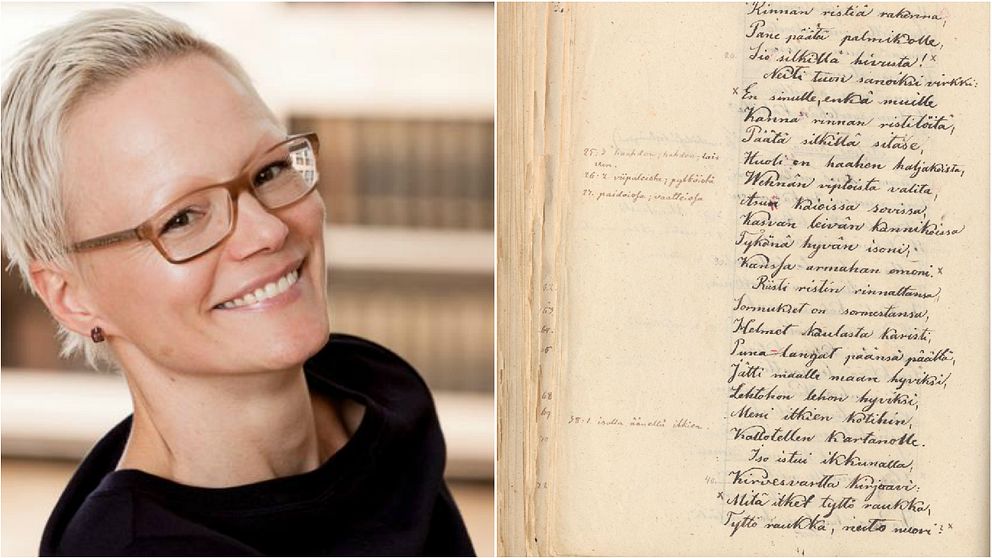 Kinnan ristiä rakenna,
Pane päätä palmikolle,
Sio silkillä hivusta! x
Neiti tuon sanoiksi virkki:
x En sinulle, enkä muille
Kanna rinnan ristilöitä,
Päätä silkillä sitase,
Huoli en haahen haljakoista,
25.
26. viipaleista; pytköistä
27. paidoissa; vaatteissa
Wehnän viploista valita,
Asun kaioissa sovissa,
Kasvan leivän kannikoissa
Tykönä hyvän isoni,
Kanssa armahan emoni. x
Riisti ristin rinnaltansa,
Sormukset on sormestansa,
Helmet kaulasta karisti,
Puna-langat päänsä päältä,
Jätti maalle maan hyviksi,
Lehtohon lehon hyviksi,
Meni itkien kotihin,
38. isolla äänellä itkien.
Kallotellen kartanolle.
Iso istui ikkunalla,
40. Kirvesvartta kirjoavi:
x Mitä itket tyttö raukka,
Tyttö raukka, neito nuori? x